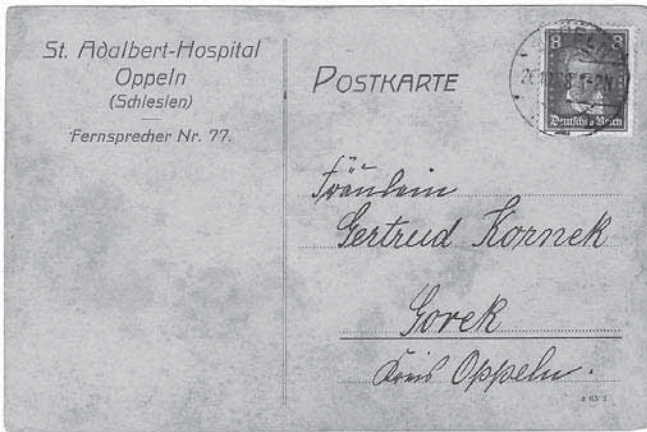 St. Adalbert-Hospital
Oppeln
(Schlesien)
Fernsprecher Nr. 77.
POSTKARTE
8 8
Deutsches Reich
Fräulein
Gertrud Kornek
Gorek
Kreis Oppeln.